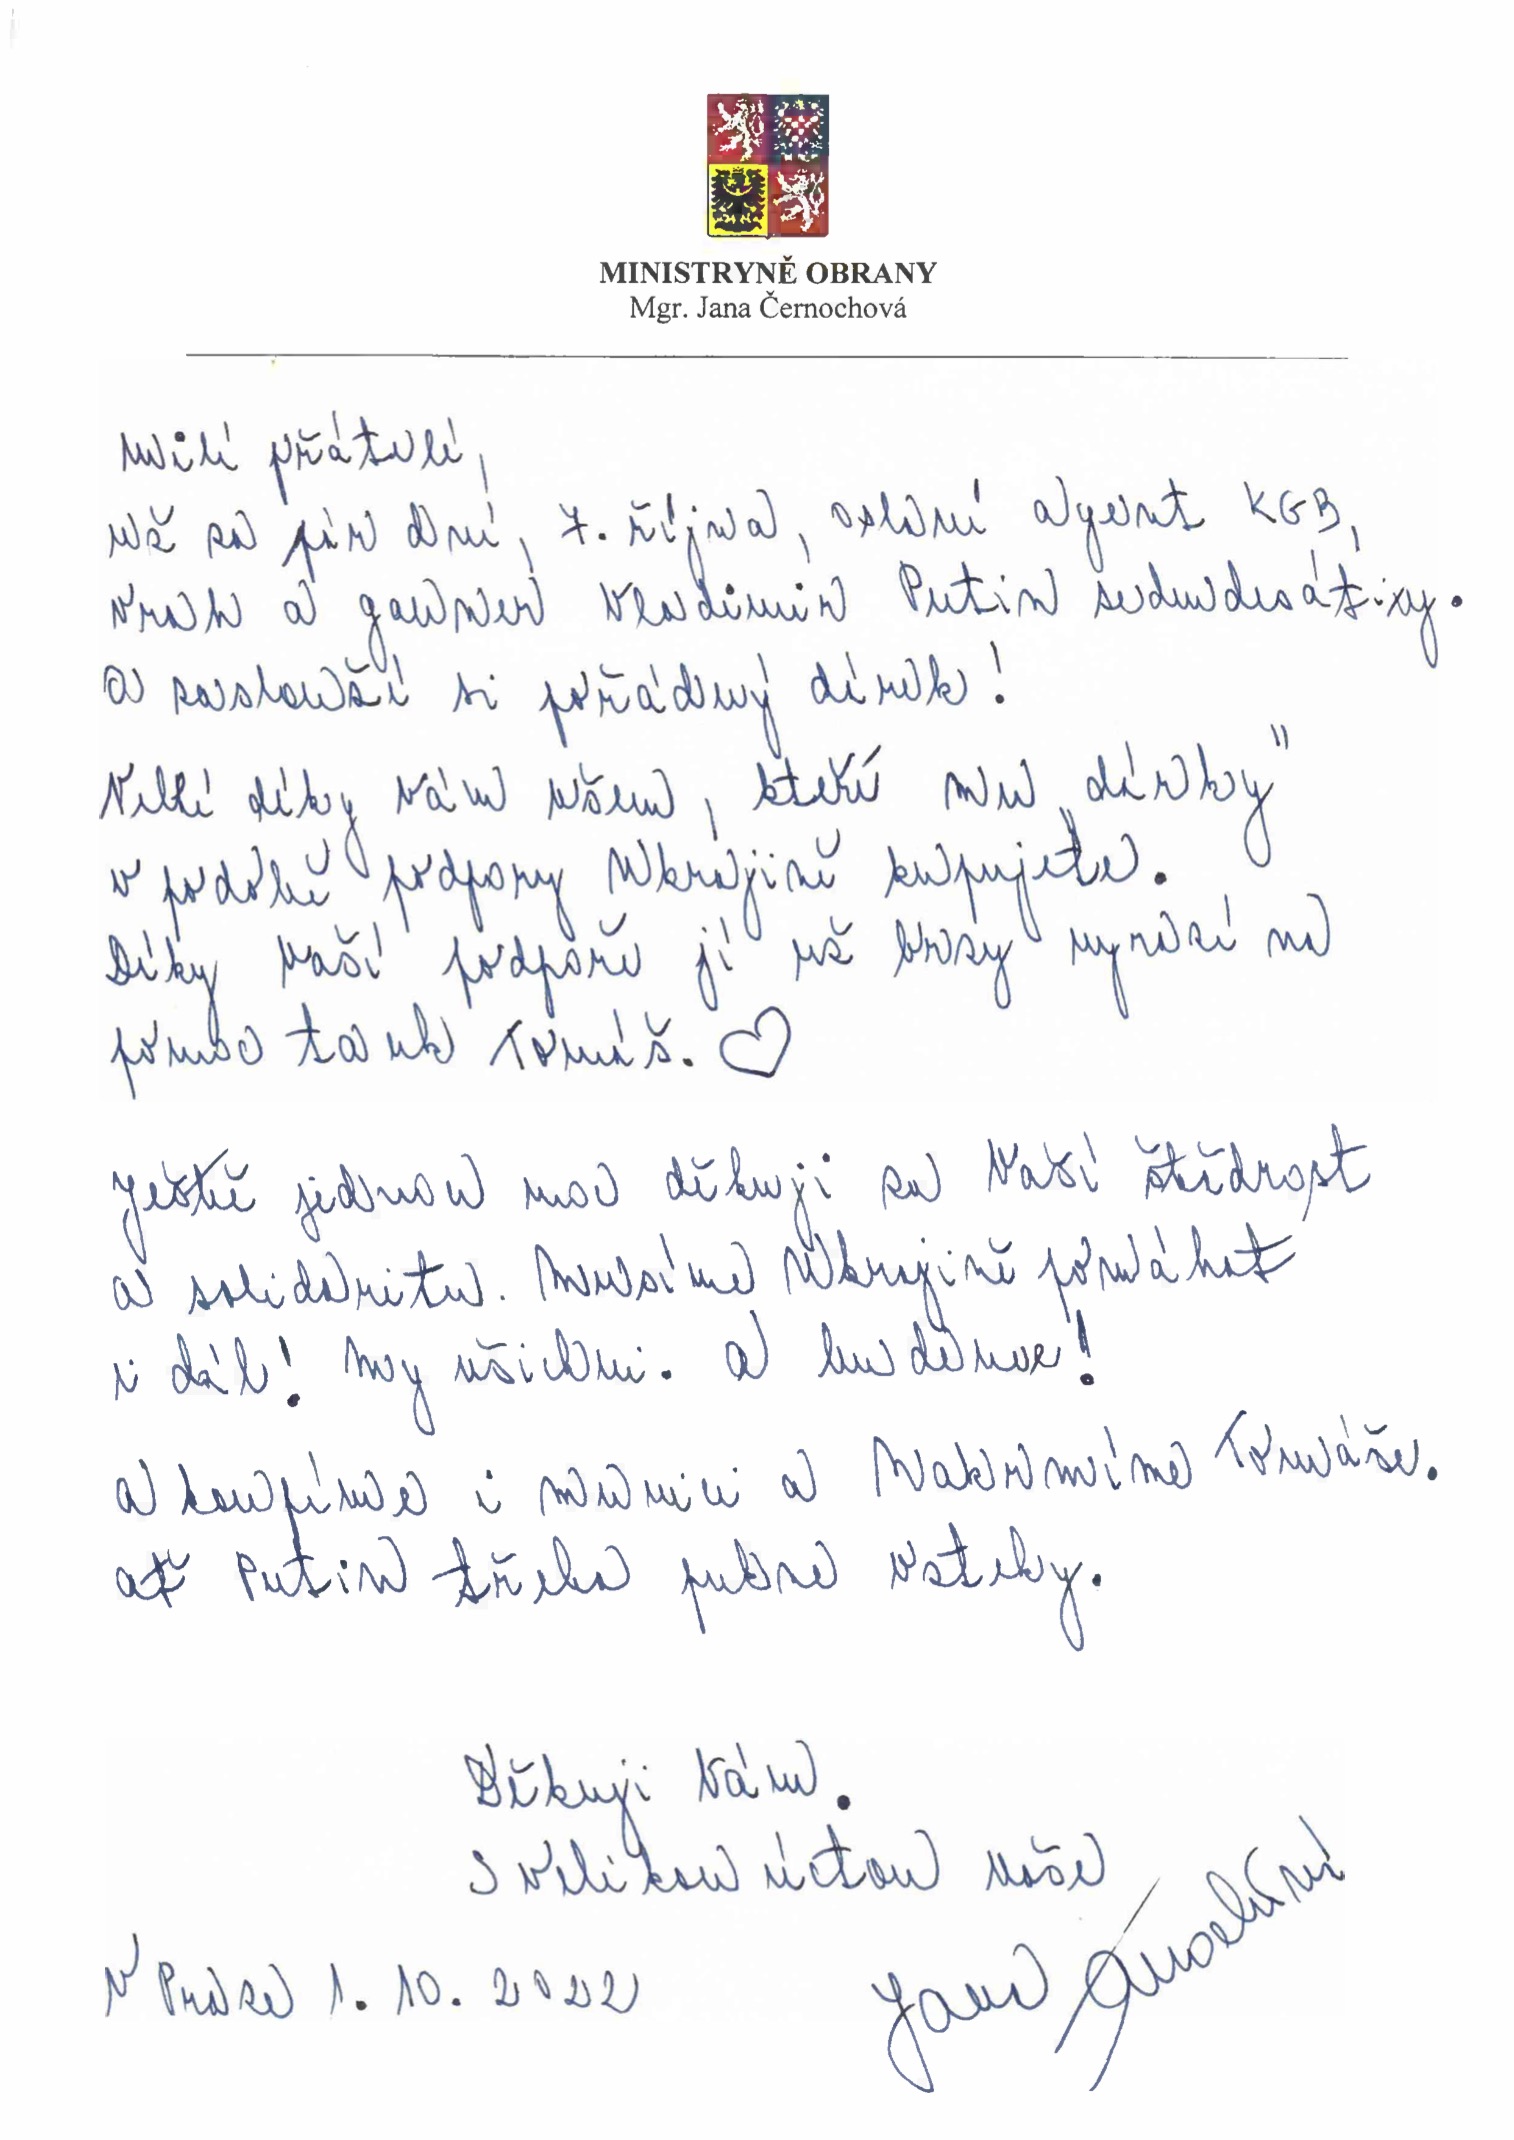 MINISTRYNĚ OBRANY
Mgr. Jana Černochová
Milí přátelé,
už za pár dní, 7. října, oslaví agent KGB,
vrah a gauner Vladimir Putin sedmdesátiny.
A zaslouží si pořádný dárek!
Velké díky Vám všem, kteří mu „dárky"
v podobě podpory Ukrajině kupujete.
Díky Vaší podpoře jí už brzy vyrazí na
pomoc tank Tomáš. ♡
Ještě jednou moc děkuji za Vaši štědrost
a solidaritu. Musíme Ukrajině pomáhat
i dál! My všichni. A budeme!
A koupíme i munici a nakrmíme Tomáše.
ať Putin třeba pukne vzteky.
Děkuji Vám.
S velikou úctou Vaše
V Praze 1. 10. 2022
Jana Černochová